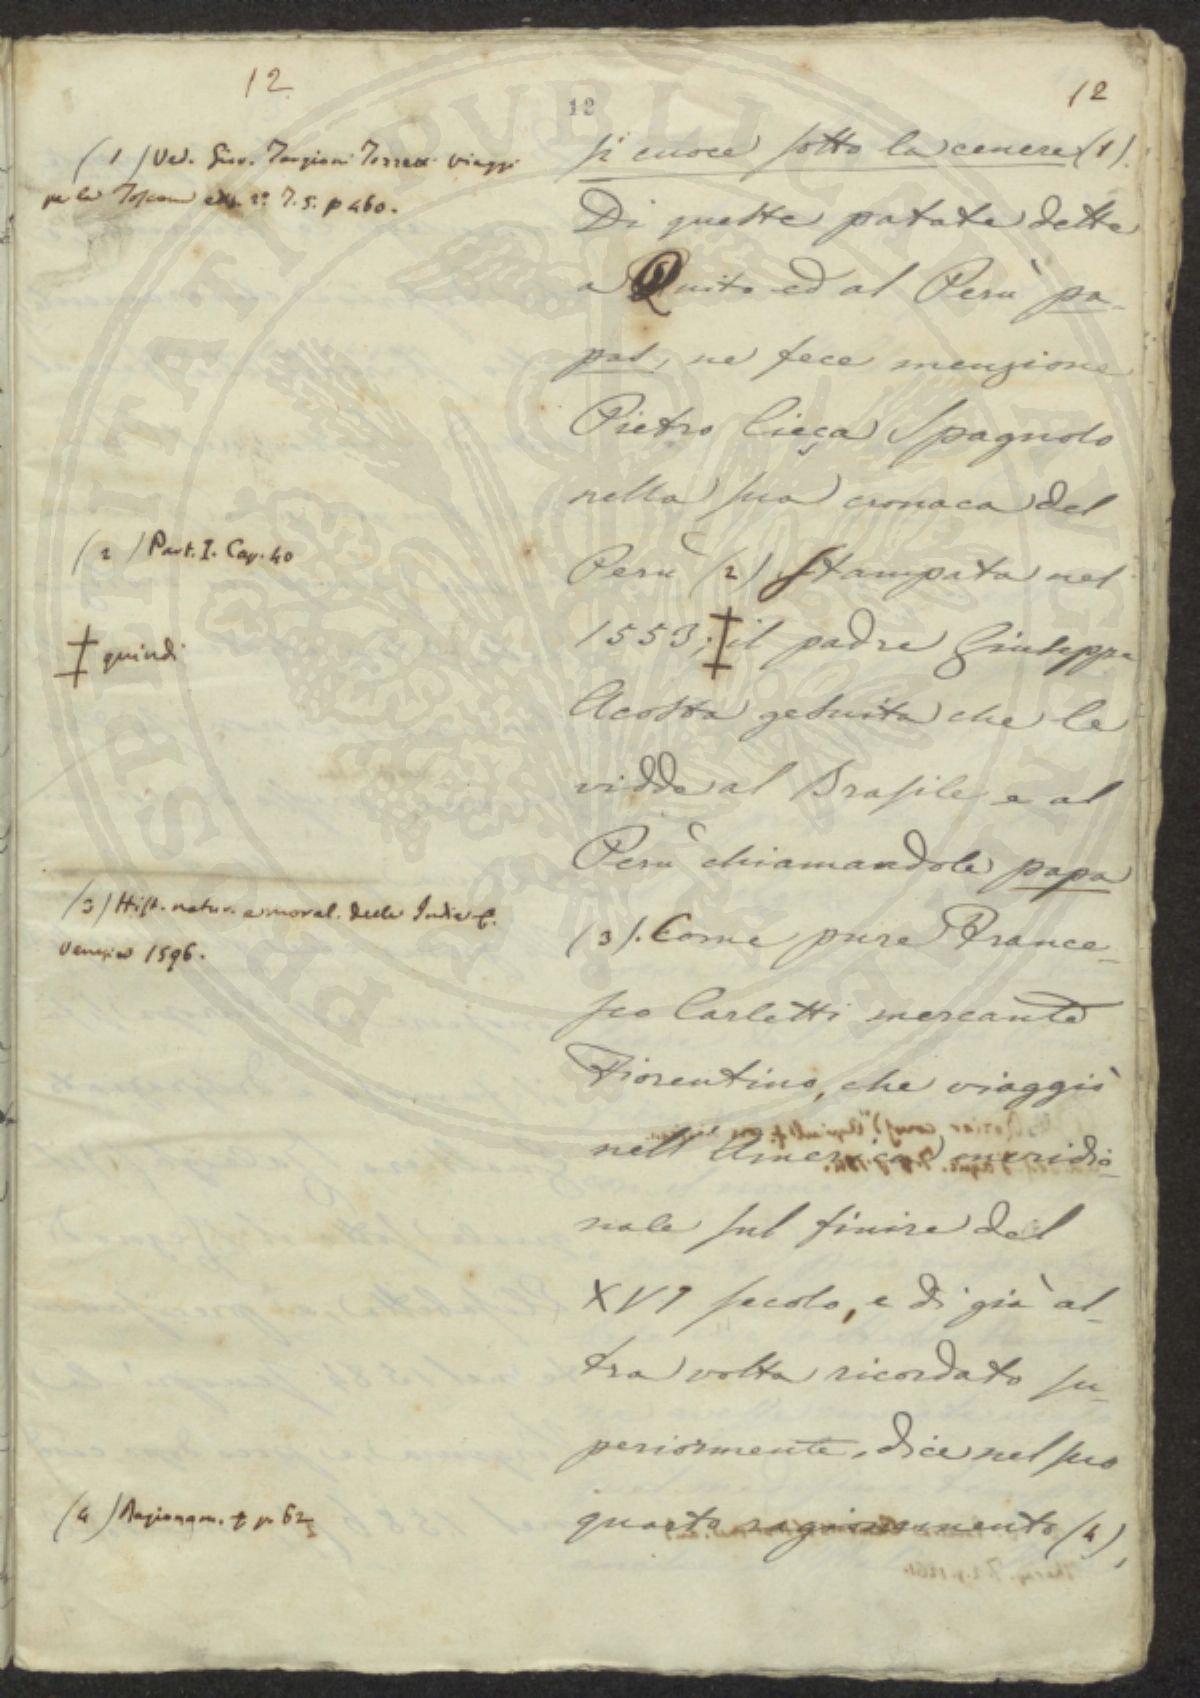 12.
12
12
(1) Ved. Giov. Targioni Tozzetti viaggi
per la Toscana ediz. 2ª T. 5. p 460.
si cuoce sotto la cenere (1).
Di queste patate dette
a Quito ed al Perù pa-
pas, ne fece menzione
Pietro Cieça Spagnolo
nella sua cronaca del
(2) Part. I. Cap. 40
Perù (2) stampata nel
‡ quindi
1553; ‡ il padre Giuseppe
Acosta gesuita che le
vidde al Brasile e al
Perù chiamandole papa
(3) Hist. natur. e moral. delle Indie &.
Venezia 1596.
(3). Come pure France-
sco Carletti mercante
Fiorentino, che viaggiò
nell' America meridio-
nale sul finire del
XVI secolo, e di già al-
tra volta ricordato su-
periormente, dice nel suo
(4) Ragionam. p. 62
quarto ragionamento (4),